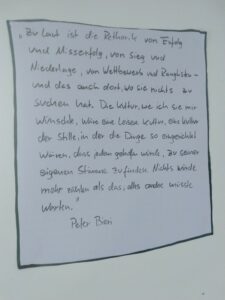 „Zu laut ist die Rethorik von Erfolg
und Misserfolg, von Sieg und
Niederlage, von Wettbewerb und Ranglisten -
und das auch dort, wo sie nichts zu
suchen hat. Die Kultur, wie ich sie mir
wünsche, wäre eine leisere Kultur, eine Kultur
der Stille, in der die Dinge so eingerichtet
wären, dass jedem geholfen würde, zu seiner
eigenen Stimme zu finden. Nichts würde
mehr zählen als das, alles andere müsste
warten."
Peter Bieri